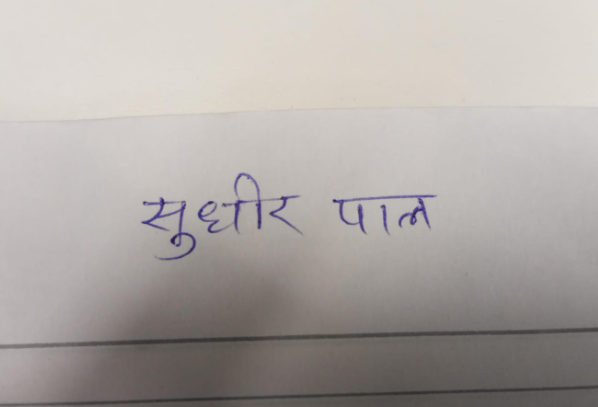 सुधीर पाल